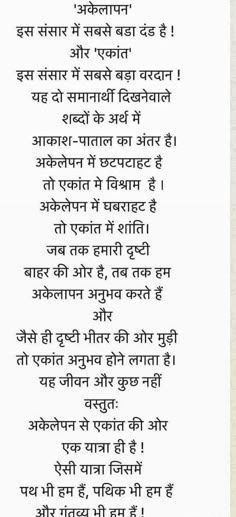 'अकेलापन'
इस संसार में सबसे बडा दंड है !
और 'एकांत'
इस संसार में सबसे बड़ा वरदान !
यह दो समानार्थी दिखनेवाले
शब्दों के अर्थ में
आकाश-पाताल का अंतर है।
अकेलेपन में छटपटाहट है
तो एकांत मे विश्राम है ।
अकेलेपन में घबराहट है
तो एकांत में शांति।
जब तक हमारी दृष्टी
बाहर की ओर है, तब तक हम
अकेलापन अनुभव करते हैं
और
जैसे ही दृष्टी भीतर की ओर मुड़ी
तो एकांत अनुभव होने लगता है।
यह जीवन और कुछ नहीं
वस्तुतः
अकेलेपन से एकांत की ओर
एक यात्रा ही है !
ऐसी यात्रा जिसमें
पथ भी हम हैं, पथिक भी हम हैं
और गंतव्य भी हम हैं !